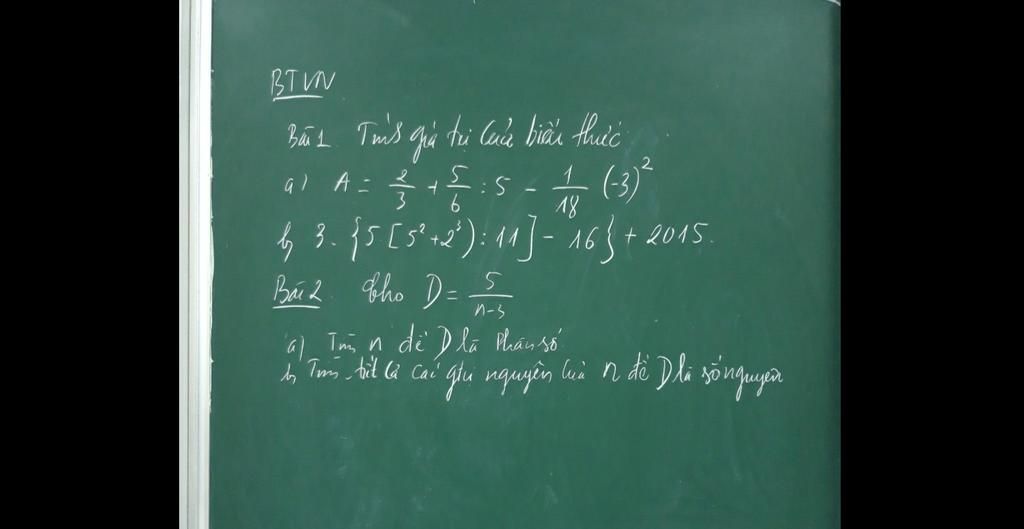 BTVN
Bài 1. Tính giá trị của biểu thức
a) A = 2/3 + 5/6 : 5 - 1/18 (-3)²
b) 3. {5 [5² + 2³) : 11] - 16} + 2015.
Bài 2. Cho D = 5/n-3
a) Tìm n để D là phân số.
b) Tìm tất cả các gtrị nguyên của n để D là số nguyên